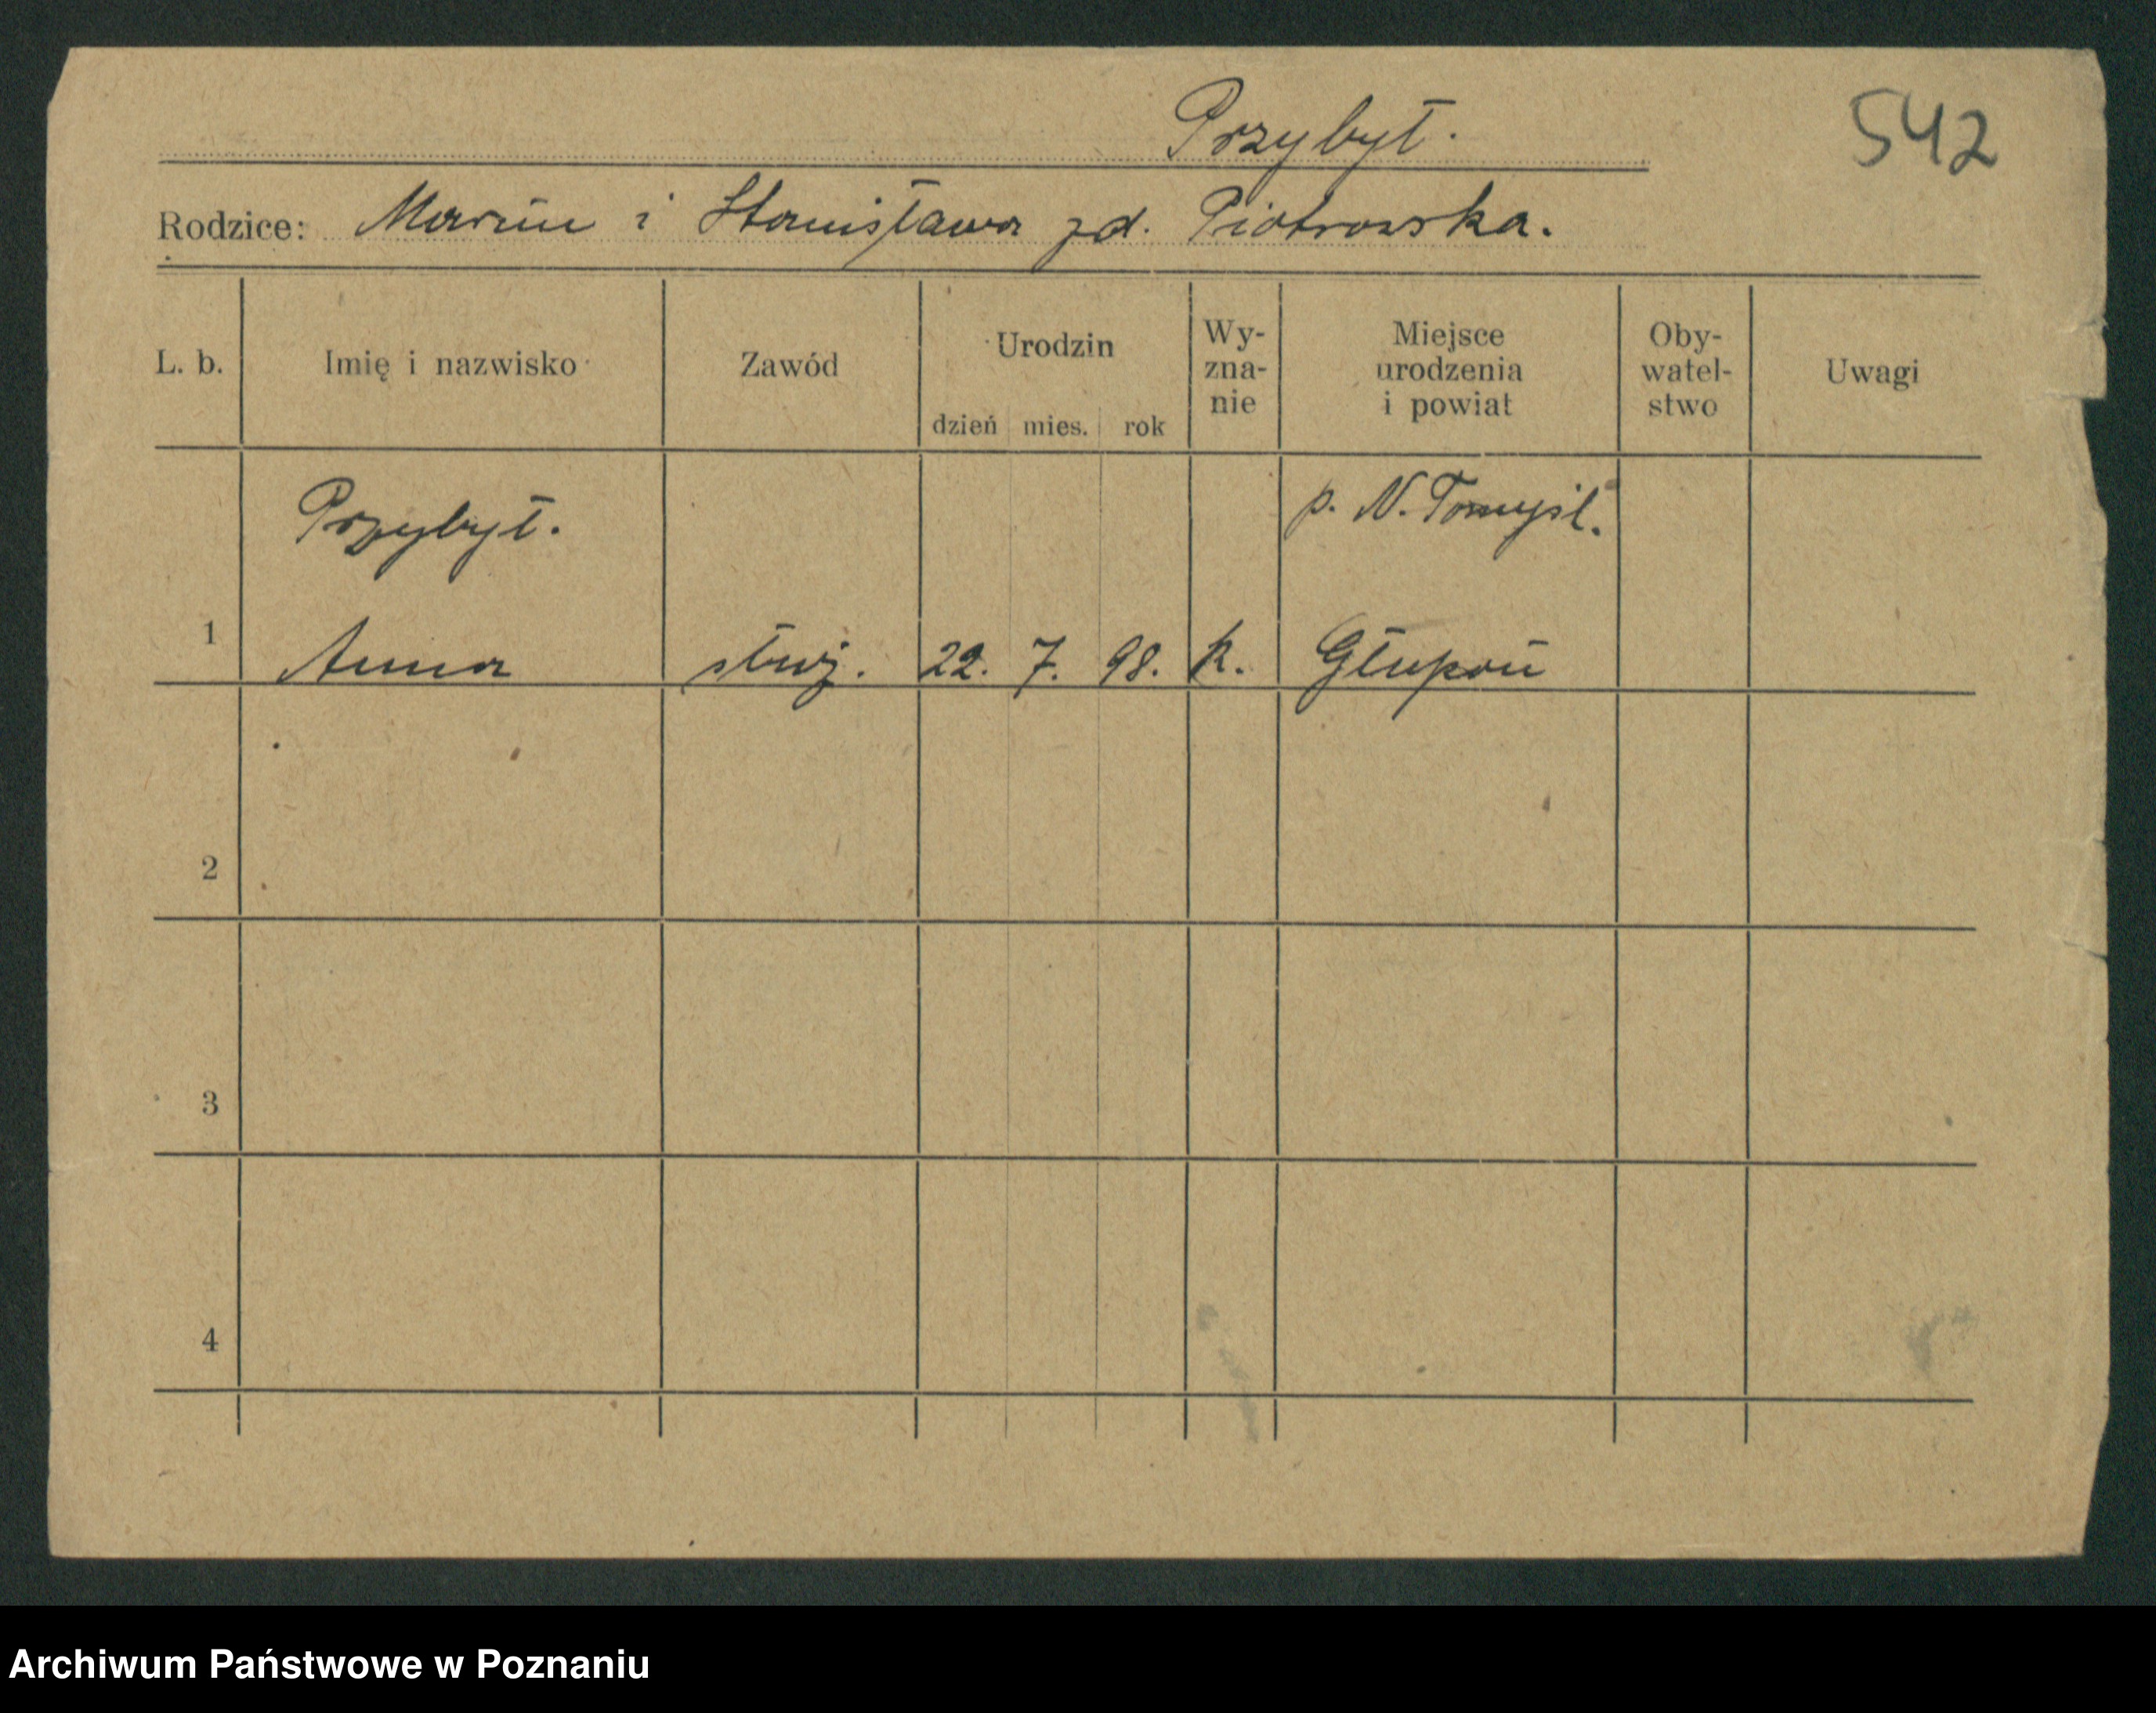 Przybył.
542
Rodzice: Marcin i Stanisława zd. Piotrowska.
L. b. Imię i nazwisko Zawód Urodzin dzień mies. rok Wy-zna-nie Miejsce urodzenia i powiat Oby-watel-stwo Uwagi
Przybył. p. N. Tomyśl.
1 Anna służ. 22. 7. 98. k. Głupoń
2
3
4
Archiwum Państwowe w Poznaniu